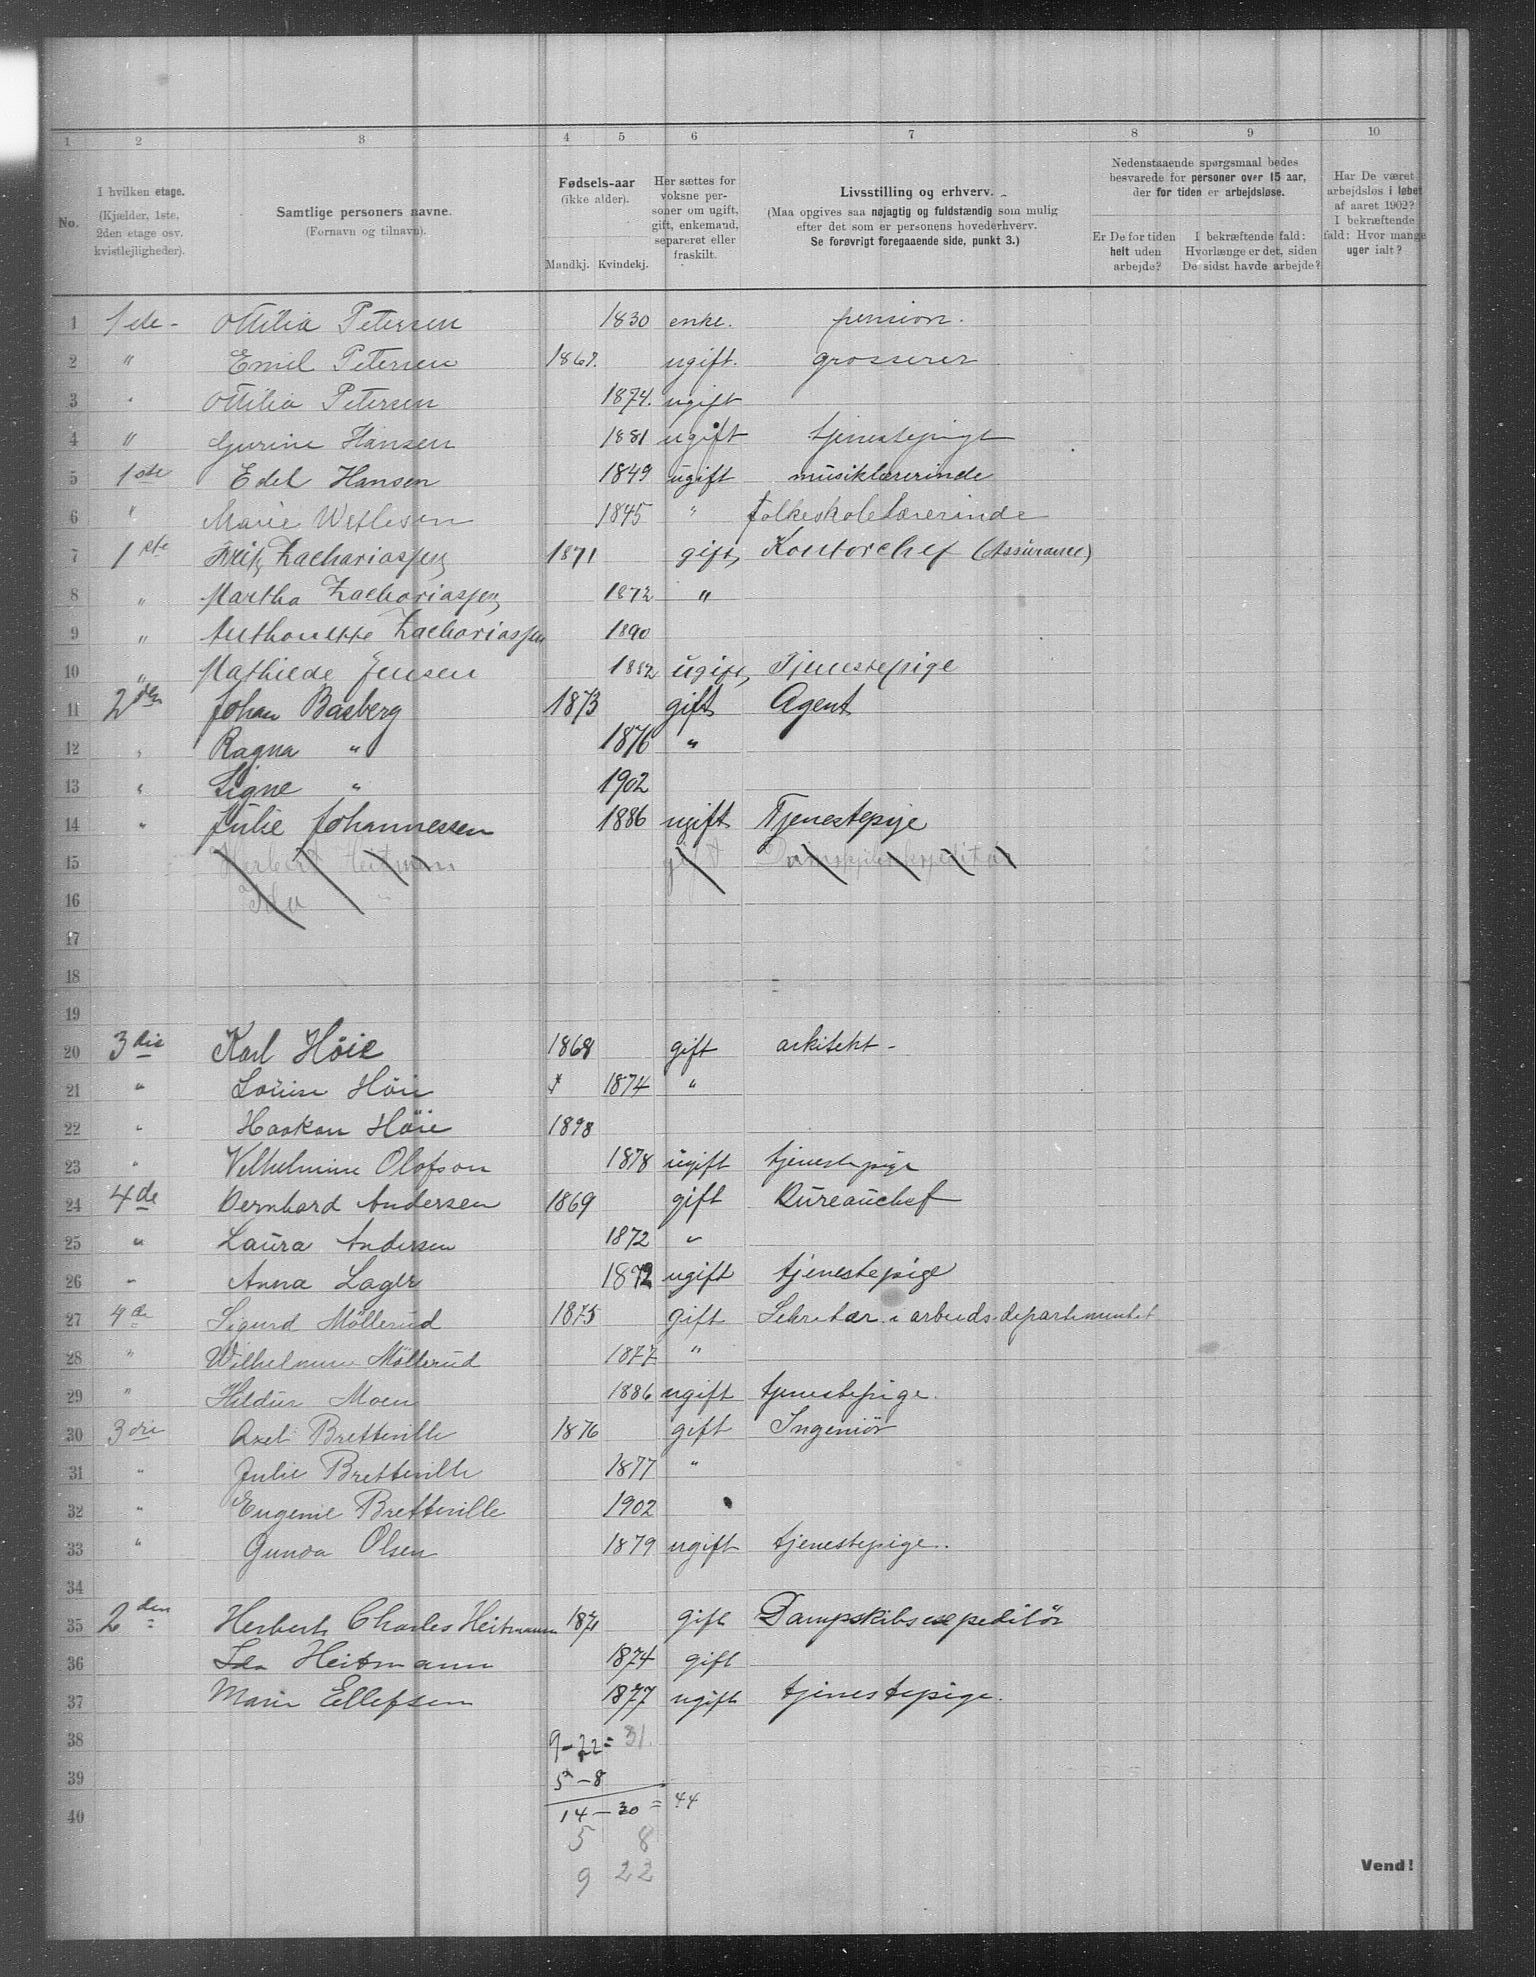 1 2 3 4 5 6 7 8 9 10
No.
I hvilken etage. (Kjælder, 1ste, 2den etage osv. kvistlejligheder).
Samtlige personers navne. (Fornavn og tilnavn).
Fødsels-aar (ikke alder). Mandkj. Kvindekj.
Her sættes for voksne personer om ugift, gift, enkemand, separeret eller fraskilt.
Livsstilling og erhverv. (Maa opgives saa nøjagtig og fuldstændig som mulig efter det som er personens hovederhverv. Se forøvrigt foregaaende side, punkt 3.)
Nedenstaaende spørgsmaal bedes besvarede for personer over 15 aar, der for tiden er arbejdsløse.
Er De for tiden helt uden arbejde?
I bekræftende fald: Hvorlænge er det, siden De sidst havde arbejde?
Har De været arbejdsløs i løbet af aaret 1902? I bekræftende fald: Hvor mange uger ialt?
1 1ste - Ottilia Petersen 1830 enke. pension.
2 " Emil Petersen 1867. ugift. grosserer
3 " Ottilia Petersen 1874. ugift
4 " Gurine Hansen 1881 ugift tjenestepige
5 1ste Edel Hansen 1849 ugift musiklærerinde
6 " Marie Wetlesen 1845 " folkeskolelærerinde
7 1ste Fritz Zachariassen 1871 gift, Kontorchef (Assurance)
8 " Martha Zachariassen 1872 "
9 " Anthonette Zachariassen 1890
10 " Mathilde Jensen 1852 ugift, Tjenestepige
11 2den Johan Basberg 1873 gift Agent
12 " Ragna " 1876 "
13 " Signe " 1902
14 " Julie Johannessen 1886 ugift Tjenestepige
15 Herbert Heitmann gift Dampskibsexpeditør
16 Ida "
17
18
19
20 3die Karl Höie 1868 gift arkitekt -
21 " Louise Höie 1874 "
22 " Haakon Höie 1898
23 " Vilhelmine Olofson 1878 ugift tjenestepige
24 4de Bernhard Andersen 1869 gift Bureauchef
25 " Laura Andersen 1872 "
26 " Anna Lager 1872 ugift tjenestepige
27 4de Sigurd Möllerud 1875 gift Sekretær i arbeidsdepartementet
28 " Wilhelmine Möllerud 1877 "
29 " Hildur Moen 1886 ugift tjenestepige.
30 3die Axel Bretteville 1876 gift Ingeniör
31 " Julie Bretteville 1877 "
32 " Eugenie Bretteville 1902
33 " Gunda Olsen 1879 ugift tjenestepige.
34
35 2den Herbert Charles Heitmann 1871 gift Dampskibsexpeditör
36 Ida Heitmann 1874 gift
37 Marie Ellefsen 1877 ugift tjenestepige.
38 9 - 22 = 31.
39 5 - 8
40 14 - 30 = 44
5 8
9 22
Vend!